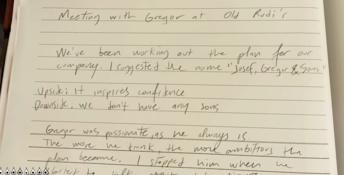 Meeting with Gregor at Old Rudi's
We've been working out the plan for our
company. I suggested the name "Josef, Gregor & Sons"
Upside: It inspires confidence
Downside: We don't have any sons
Gregor was passionate, as he always is
The more we drink, the more ambitious the
plan became. I stopped him when he
started to talk